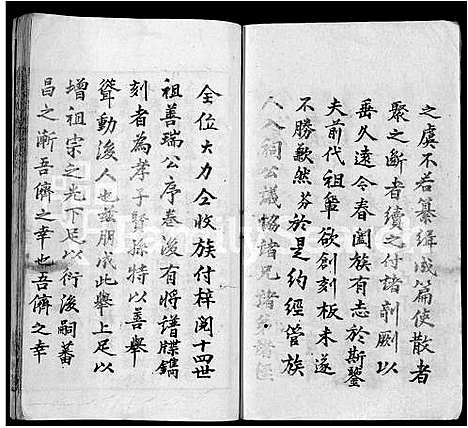 之虞不若纂緝成篇使散者
聚之斷者續之付諸剞劂以
垂久遠令春闔族有志於斯鑒
夫前代祖肇欲創刻板未遂
不勝歉然爰於是約經管族
人入祠公議協諸兄諸弟諸侄
全位大力仝收族付梓閱十四世
祖善瑞公序卷後有將譜牒鐫
刻者為孝子賢孫特以善舉
聳動後人也茲朋成此舉上足以
增祖宗之光下足以衍後嗣蕃
昌之漸吾儕之幸也吾儕之幸